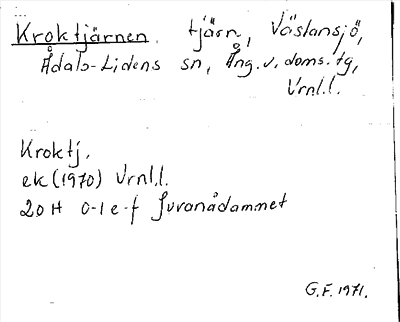 Kroktjärnen. tjärn, Väslansjö,
Ådals-Lidens sn, Ång. v. doms. tg,
Vrnl.l.
Kroktj.
ek (1970) Vrnl.l.
20 H 0-1 e-f Juvanådammet
G.F. 1971.